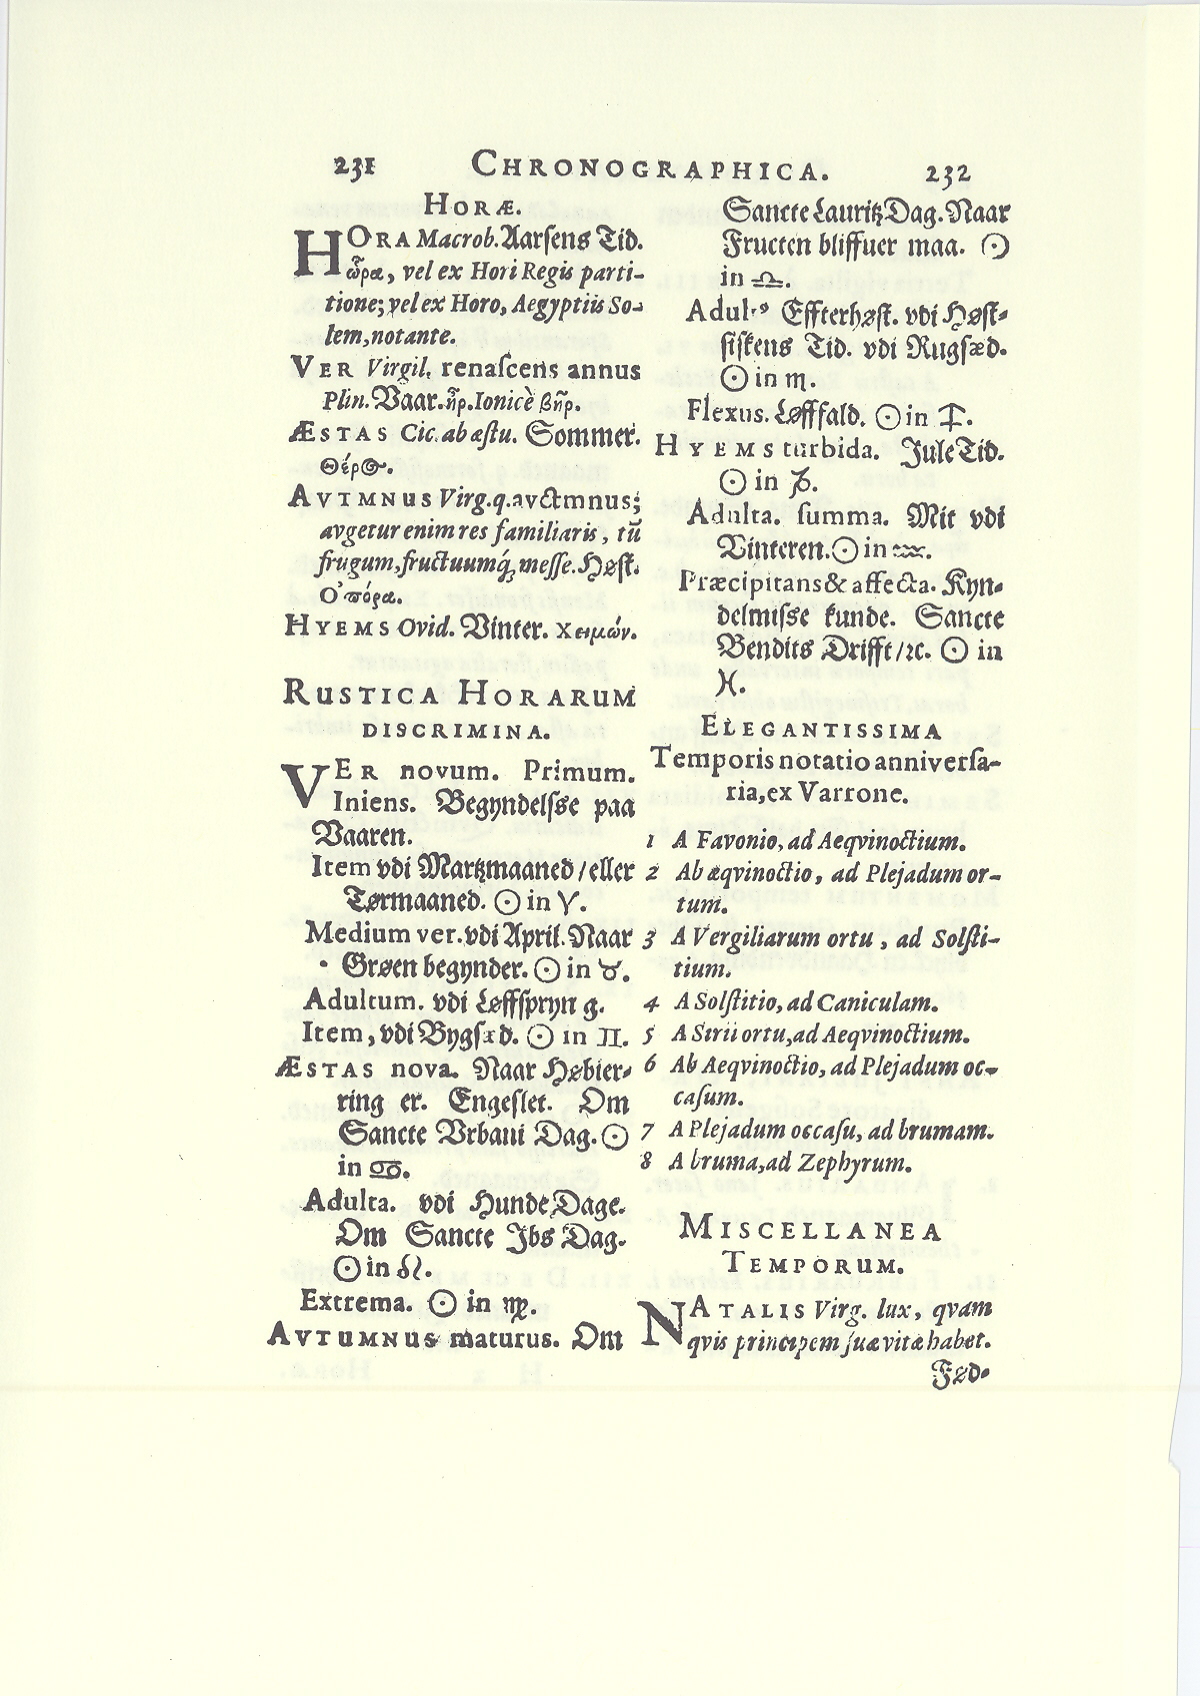 231 CHRONOGRAPHICA. 232
HORÆ.
HORA Macrob. Aarsens Tid.
ὥρα, vel ex Hori Regis parti-
tione; vel ex Horo, Aegyptiis So-
lem, notante.
VER Virgil. renaſcens annus
Plin. Vaar. ἦρ. Ionicè βῆρ.
ÆSTAS Cic. ab æſtu. Sommer.
Θέρος.
AVTMNUS Virg. q. avctmnus;
avgetur enim res familiaris, tū
frugum, fructuumq́; meſſe. Høſt.
Ὀπόρα.
HYEMS Ovid. Vinter. χειμών.
RUSTICA HORARUM
DISCRIMINA.
VER novum. Primum.
Iniens. Begyndelſſe paa
Vaaren.
Item vdi Martzmaaned / eller
Tørmaaned. ☉ in ♈.
Medium ver. vdi April. Naar
Grøen begynder. ☉ in ♉.
Adultum. vdi Løffſpryng.
Item, vdi Bygſæd. ☉ in ♊.
ÆSTAS nova. Naar Høbier-
ring er. Engeſlet. Om
Sancte Vrbani Dag. ☉
in ♋.
Adulta. vdi Hunde Dage.
Om Sancte Ibs Dag.
☉ in ♌.
Extrema. ☉ in ♍.
AVTUMNUS maturus. Om
Sancte Lauritz Dag. Naar
Fructen bliffuer maa. ☉
in ♎.
Adul. Effterhøſt. vdi Høſt-
fiſkens Tid. vdi Rugſæd.
☉ in ♏.
Flexus. Løffald. ☉ in ♐.
HYEMS turbida. Jule Tid.
☉ in ♑.
Adulta. ſumma. Mit vdi
Vinteren. ☉ in ♒.
Præcipitans & affecta. Kyn-
delmiſſe kunde. Sancte
Bendits Drifft / ꝛc. ☉ in
♓.
ELEGANTISSIMA
Temporis notatio anniverſa-
ria, ex Varrone.
1 A Favonio, ad Aeqvinoctium.
2 Ab æqvinoctio, ad Plejadum or-
tum.
3 A Vergiliarum ortu, ad Solſti-
tium.
4 A Solſtitio, ad Caniculam.
5 A Sirii ortu, ad Aeqvinoctium.
6 Ab Aeqvinoctio, ad Plejadum oc-
caſum.
7 A Plejadum occaſu, ad brumam.
8 A bruma, ad Zephyrum.
MISCELLANEA
TEMPORUM.
NATALIS Virg. lux, qvam
qvis principem ſuæ vitæ habet.
Fød-